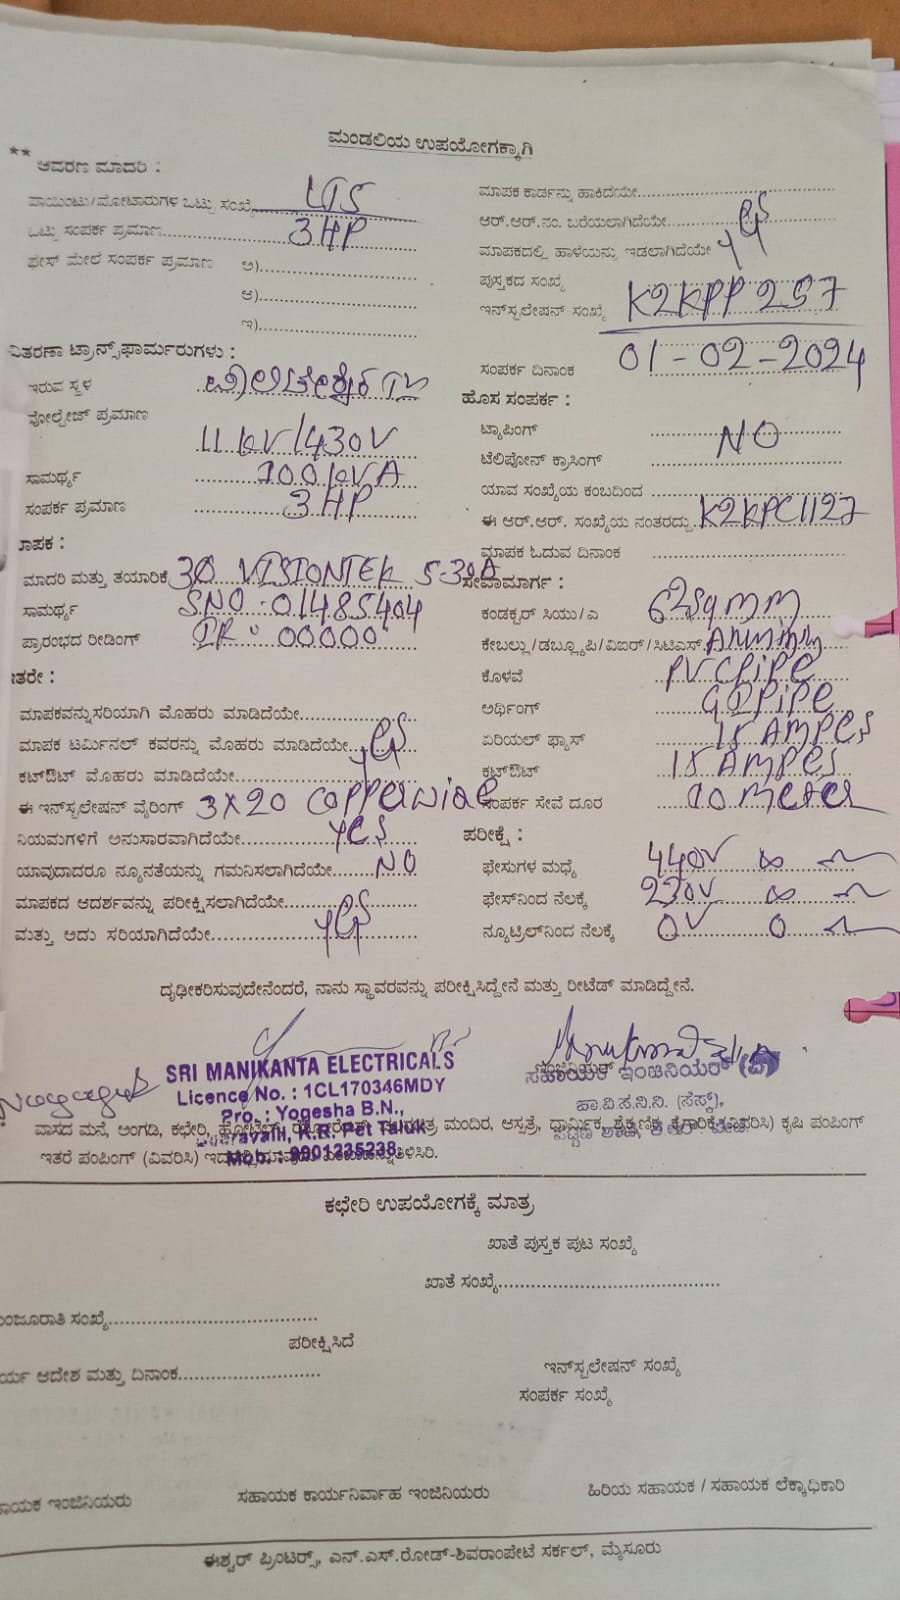 ಮಂಡಲಿಯ ಉಪಯೋಗಕ್ಕಾಗಿ
**
ಆವರಣ ಮಾದರಿ :
ಪಾಯಿಂಟು/ಮೋಟಾರುಗಳ ಒಟ್ಟು ಸಂಖ್ಯೆ
ಒಟ್ಟು ಸಂಪರ್ಕ ಪ್ರಮಾಣ 3 HP
ಫೇಸ್ ಮೇಲೆ ಸಂಪರ್ಕ ಪ್ರಮಾಣ ಅ)
ಆ)
ಇ)
ವಿತರಣಾ ಟ್ರಾನ್ಸ್‌ಫಾರ್ಮರುಗಳು :
ಇರುವ ಸ್ಥಳ
ವೋಲ್ಟೇಜ್ ಪ್ರಮಾಣ
11 kV/430V
ಸಾಮರ್ಥ್ಯ 100 kVA
ಸಂಪರ್ಕ ಪ್ರಮಾಣ 3 HP
ಮಾಪಕ :
ಮಾದರಿ ಮತ್ತು ತಯಾರಿಕೆ 3Ø VISIONTEK 5-30A
ಸಾಮರ್ಥ್ಯ S.NO : 01485404
ಪ್ರಾರಂಭದ ರೀಡಿಂಗ್ IR : 00000
ಇತರೇ :
ಮಾಪಕವನ್ನು ಸರಿಯಾಗಿ ಮೊಹರು ಮಾಡಿದೆಯೇ
ಮಾಪಕ ಟರ್ಮಿನಲ್ ಕವರನ್ನು ಮೊಹರು ಮಾಡಿದೆಯೇ yes
ಕಟ್‌ಔಟ್ ಮೊಹರು ಮಾಡಿದೆಯೇ
ಈ ಇನ್‌ಸ್ಟಲೇಷನ್ ವೈರಿಂಗ್ 3X20 Copperwire
ನಿಯಮಗಳಿಗೆ ಅನುಸಾರವಾಗಿದೆಯೇ yes
ಯಾವುದಾದರೂ ನ್ಯೂನತೆಯನ್ನು ಗಮನಿಸಲಾಗಿದೆಯೇ NO
ಮಾಪಕದ ಆದರ್ಶವನ್ನು ಪರೀಕ್ಷಿಸಲಾಗಿದೆಯೇ
ಮತ್ತು ಅದು ಸರಿಯಾಗಿದೆಯೇ yes
ಮಾಪಕ ಕಾರ್ಡನ್ನು ಹಾಕಿದೆಯೇ
ಆರ್.ಆರ್.ನಂ. ಬರೆಯಲಾಗಿದೆಯೇ yes
ಮಾಪಕದಲ್ಲಿ ಹಾಳೆಯನ್ನು ಇಡಲಾಗಿದೆಯೇ
ಪುಸ್ತಕದ ಸಂಖ್ಯೆ
ಇನ್‌ಸ್ಟಲೇಷನ್ ಸಂಖ್ಯೆ K2KPP 257
ಸಂಪರ್ಕ ದಿನಾಂಕ 01-02-2024
ಹೊಸ ಸಂಪರ್ಕ :
ಟ್ಯಾಪಿಂಗ್ NO
ಟೆಲಿಪೋನ್ ಕ್ರಾಸಿಂಗ್
ಯಾವ ಸಂಖ್ಯೆಯ ಕಂಬದಿಂದ
ಈ ಆರ್.ಆರ್. ಸಂಖ್ಯೆಯ ನಂತರದ್ದು K2KPC1127
ಮಾಪಕ ಓದುವ ದಿನಾಂಕ
ಸೇವಾಮಾರ್ಗ :
ಕಂಡಕ್ಟರ್ ಸಿಯು/ಎ
ಕೇಬಲ್ಲು/ಡಬ್ಲ್ಯೂಪಿ/ವಿಐಆರ್/ಸಿಟಿಎಸ್
ಕೊಳವೆ PVC Pipe
ಅರ್ಥಿಂಗ್ GI Pipe
ಏರಿಯಲ್ ಫ್ಯೂಸ್ 15 AMPES
ಕಟ್‌ಔಟ್ 15 AMPES
ಸಂಪರ್ಕ ಸೇವೆ ದೂರ 10 meter
ಪರೀಕ್ಷೆ :
ಫೇಸುಗಳ ಮಧ್ಯೆ 440V ∞
ಫೇಸ್‌ನಿಂದ ನೆಲಕ್ಕೆ 230V ∞
ನ್ಯೂಟ್ರಲ್‌ನಿಂದ ನೆಲಕ್ಕೆ 0V 0
ದೃಢೀಕರಿಸುವುದೇನೆಂದರೆ, ನಾನು ಸ್ಥಾವರವನ್ನು ಪರೀಕ್ಷಿಸಿದ್ದೇನೆ ಮತ್ತು ರೀಟೆಡ್ ಮಾಡಿದ್ದೇನೆ.
SRI MANIKANTA ELECTRICALS
Licence No. : 1CL170346MDY
Pro. : Yogesha B.N.,
K.R. Pet Taluk
ಸಹಾಯಕ ಇಂಜಿನಿಯರ್ (ವಿ)
ಚಾ.ವಿ.ಸ.ನಿ.ನಿ. (ಸೆಸ್ಕ್),
ವಾಸದ ಮನೆ, ಅಂಗಡಿ, ಕಛೇರಿ, ಮಂದಿರ, ಆಸ್ಪತ್ರೆ, ಧಾರ್ಮಿಕ, ಶೈಕ್ಷಣಿಕ, ಕೈಗಾರಿಕೆ (ವಿವರಿಸಿ) ಕೃಷಿ ಪಂಪಿಂಗ್
ಇತರೆ ಪಂಪಿಂಗ್ (ವಿವರಿಸಿ)
ಕಛೇರಿ ಉಪಯೋಗಕ್ಕೆ ಮಾತ್ರ
ಖಾತೆ ಪುಸ್ತಕ ಪುಟ ಸಂಖ್ಯೆ
ಖಾತೆ ಸಂಖ್ಯೆ
ಮಂಜೂರಾತಿ ಸಂಖ್ಯೆ
ಪರೀಕ್ಷಿಸಿದೆ
ಕಾರ್ಯ ಆದೇಶ ಮತ್ತು ದಿನಾಂಕ
ಇನ್‌ಸ್ಟಲೇಷನ್ ಸಂಖ್ಯೆ
ಸಂಪರ್ಕ ಸಂಖ್ಯೆ
ಸಹಾಯಕ ಇಂಜಿನಿಯರು ಸಹಾಯಕ ಕಾರ್ಯನಿರ್ವಾಹ ಇಂಜಿನಿಯರು ಹಿರಿಯ ಸಹಾಯಕ / ಸಹಾಯಕ ಲೆಕ್ಕಾಧಿಕಾರಿ
ಈಶ್ವರ್ ಪ್ರಿಂಟರ್ಸ್, ಎನ್.ಎಸ್.ರೋಡ್-ಶಿವರಾಂಪೇಟೆ ಸರ್ಕಲ್, ಮೈಸೂರು